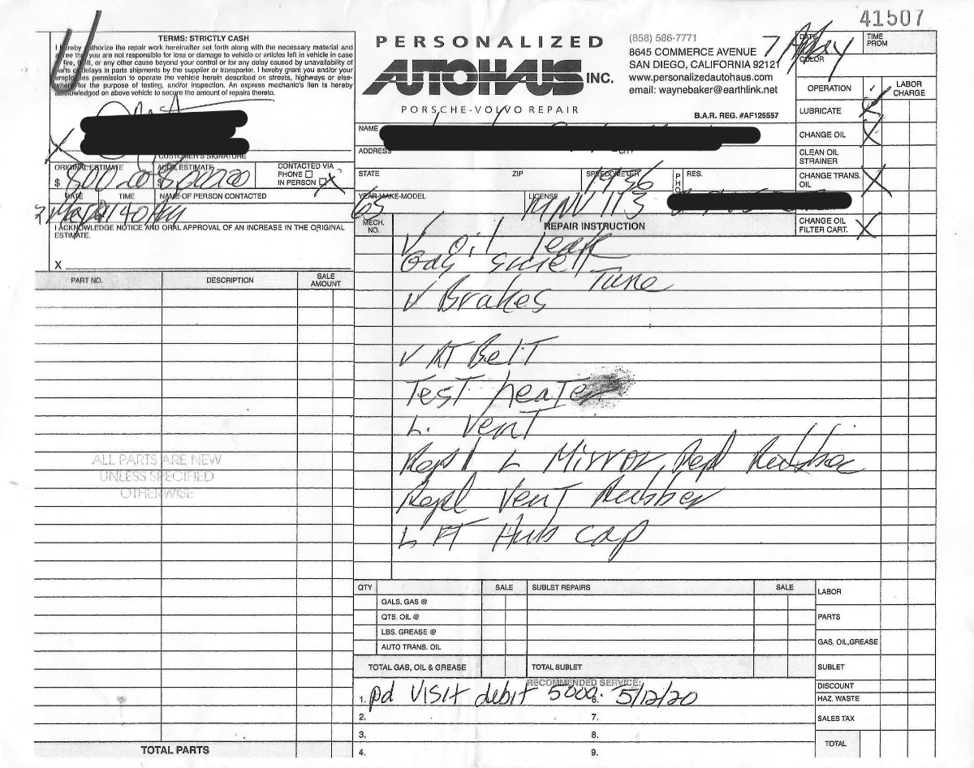 41507
TERMS: STRICTLY CASH
I hereby authorize the repair work hereinafter set forth along with the necessary material and
agree that you are not responsible for loss or damage to vehicle or articles left in vehicle in case
of fire, theft, or any other cause beyond your control or for any delay caused by unavailability of
parts or delays in parts shipments by the supplier or transporter. I hereby grant you and/or your
employees permission to operate the vehicle herein described on streets, highways or else-
where for the purpose of testing, and/or inspection. An express mechanic's lien is hereby
acknowledged on above vehicle to secure the amount of repairs thereto.
CUSTOMER'S SIGNATURE
ORIGINAL ESTIMATE
ADD. ESTIMATE
CONTACTED VIA
PHONE
IN PERSON X
$
DATE TIME NAME OF PERSON CONTACTED
I ACKNOWLEDGE NOTICE AND ORAL APPROVAL OF AN INCREASE IN THE ORIGINAL
ESTIMATE.
X
PERSONALIZED
AUTOHAUS INC.
PORSCHE-VOLVO REPAIR
(858) 586-7771
8645 COMMERCE AVENUE
SAN DIEGO, CALIFORNIA 92121
www.personalizedautohaus.com
email: waynebaker@earthlink.net
B.A.R. REG. #AF125557
DATE
COLOR
TIME
PROM
OPERATION ✓ LABOR
CHARGE
LUBRICATE X
CHANGE OIL X
CLEAN OIL
STRAINER
CHANGE TRANS.
OIL X
CHANGE OIL
FILTER CART. X
NAME
ADDRESS
CITY
STATE ZIP SPEEDOMETER PHO RES.
1936
YEAR-MAKE-MODEL LICENSE
65
MECH.
NO.
REPAIR INSTRUCTION
✓ oil leak
Gas smell
Tune
✓ Brakes
✓ AT Belt
Test heater
L. Vent
Repl L Mirror, Repl Rubber
Repl Vent Rubber
L FT Hub cap
PART NO. DESCRIPTION SALE
AMOUNT
ALL PARTS ARE NEW
UNLESS SPECIFIED
OTHERWISE
TOTAL PARTS
QTY SALE SUBLET REPAIRS SALE
GALS, GAS @
QTS. OIL @
LBS. GREASE @
AUTO TRANS. OIL
TOTAL GAS, OIL & GREASE TOTAL SUBLET
LABOR
PARTS
GAS, OIL,GREASE
SUBLET
DISCOUNT
HAZ. WASTE
SALES TAX
TOTAL
RECOMMENDED SERVICE:
1. pd VISIT debit 5/12/20
6.
2. 7.
3. 8.
4. 9.